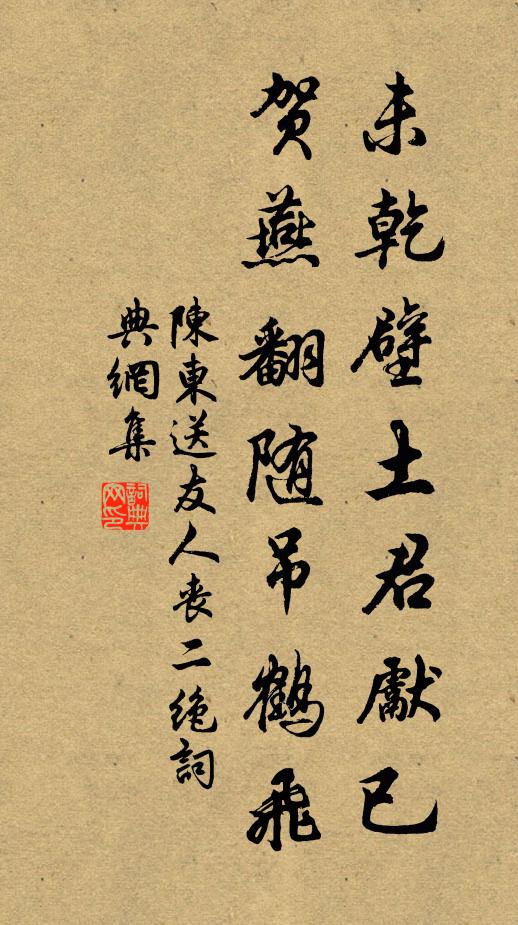 未乾壁土君獻已
賀燕翻随吊鶴飛
陳東送友人丧二绝詞
典網集
詞典网印